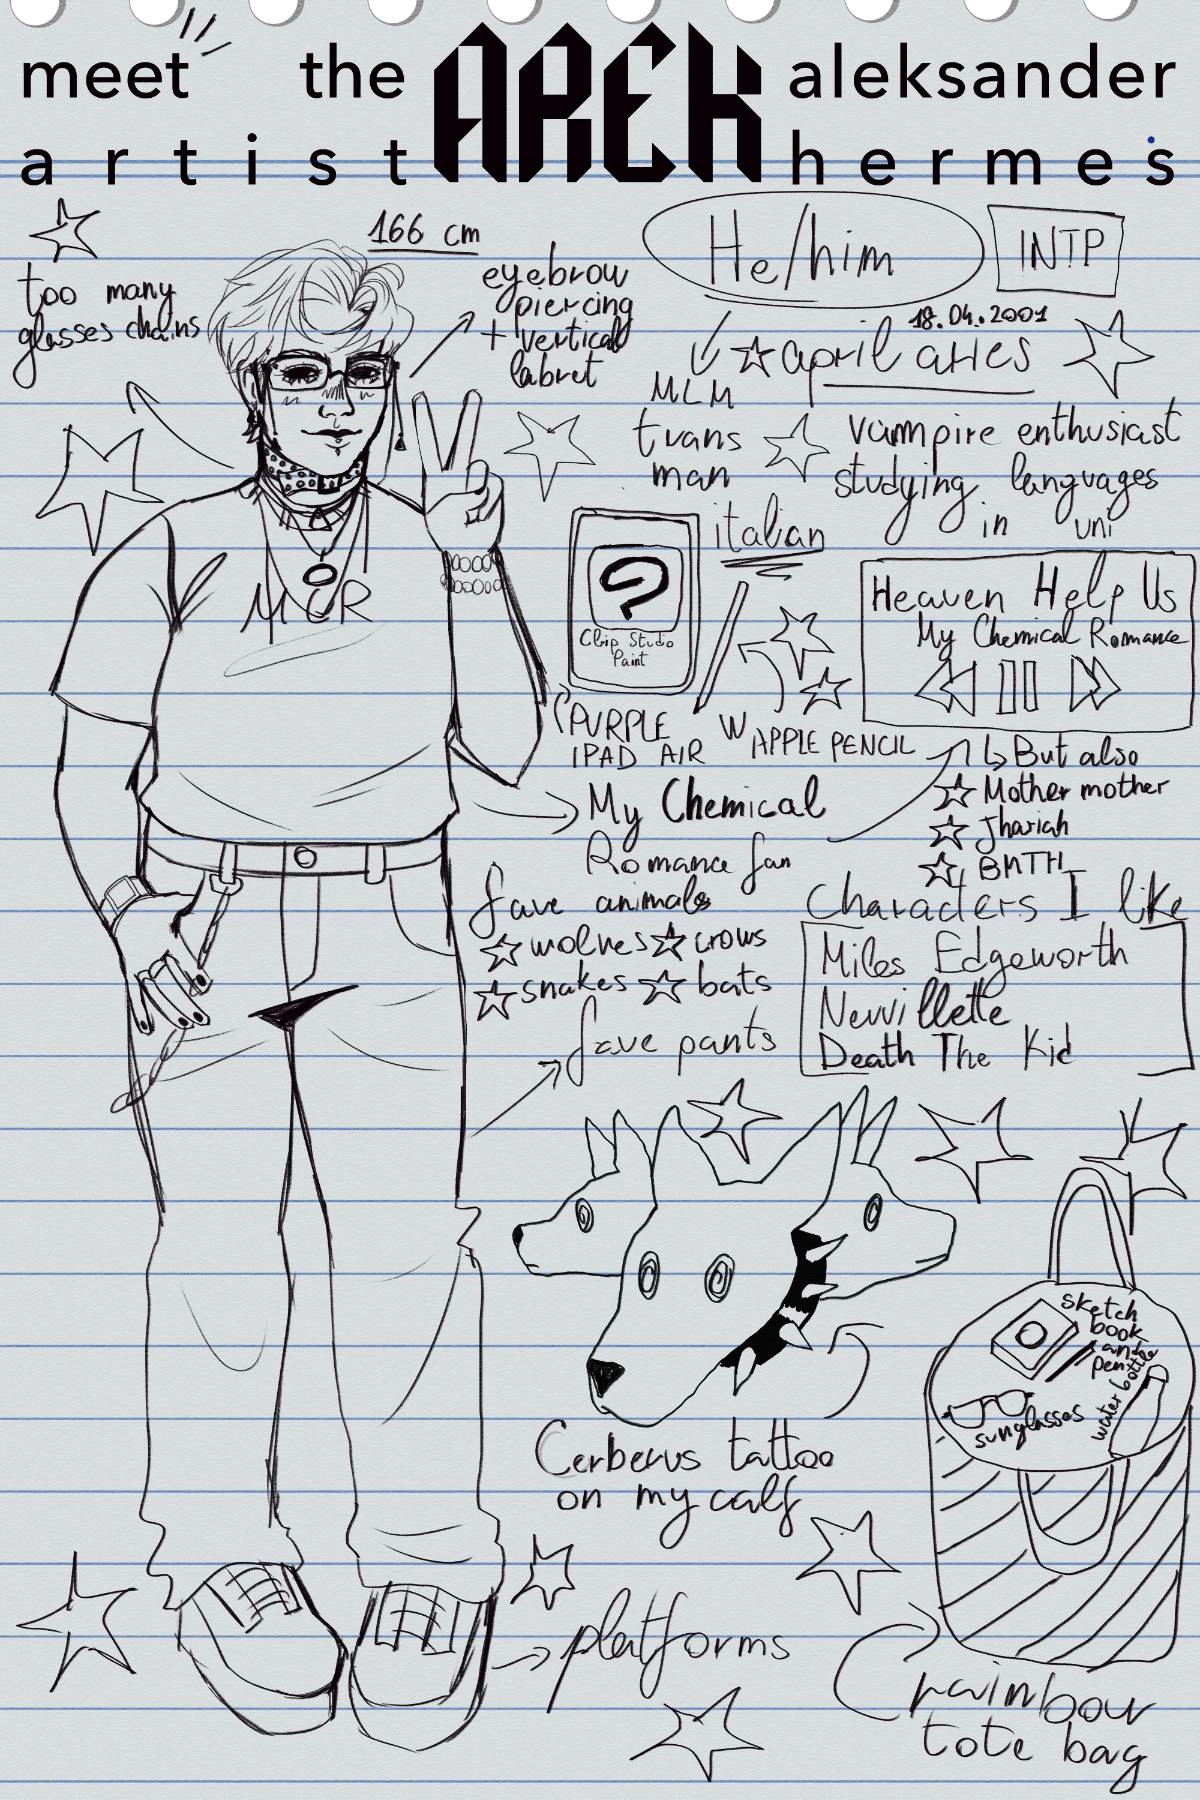 meet the AREK aleksander
artist hermes
166 cm
too many
glasses chains
eyebrow
piercing
+ vertical
labret
He/him
INTP
18.04.2001
april aries
MLM
trans
man
vampire enthusiast
studying languages
in uni
italian
MCR
Clip Studio
Paint
PURPLE
IPAD AIR
W APPLE PENCIL
Heaven Help Us
My Chemical Romance
But also
Mother mother
Jhariah
BMTH
My Chemical
Romance fan
fave animals
wolves crows
snakes bats
Characters I like
Miles Edgeworth
Neuvillette
Death The Kid
fave pants
Cerberus tattoo
on my calf
sketch
book
and
pen
water bottle
sunglasses
platforms
rainbow
tote bag